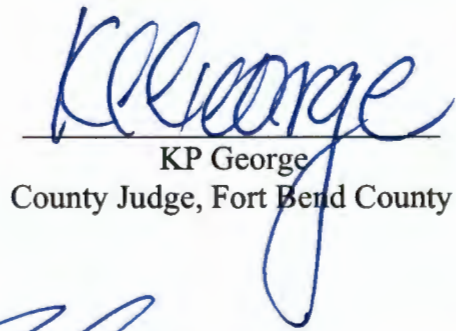 KP George
KP George
County Judge, Fort Bend County